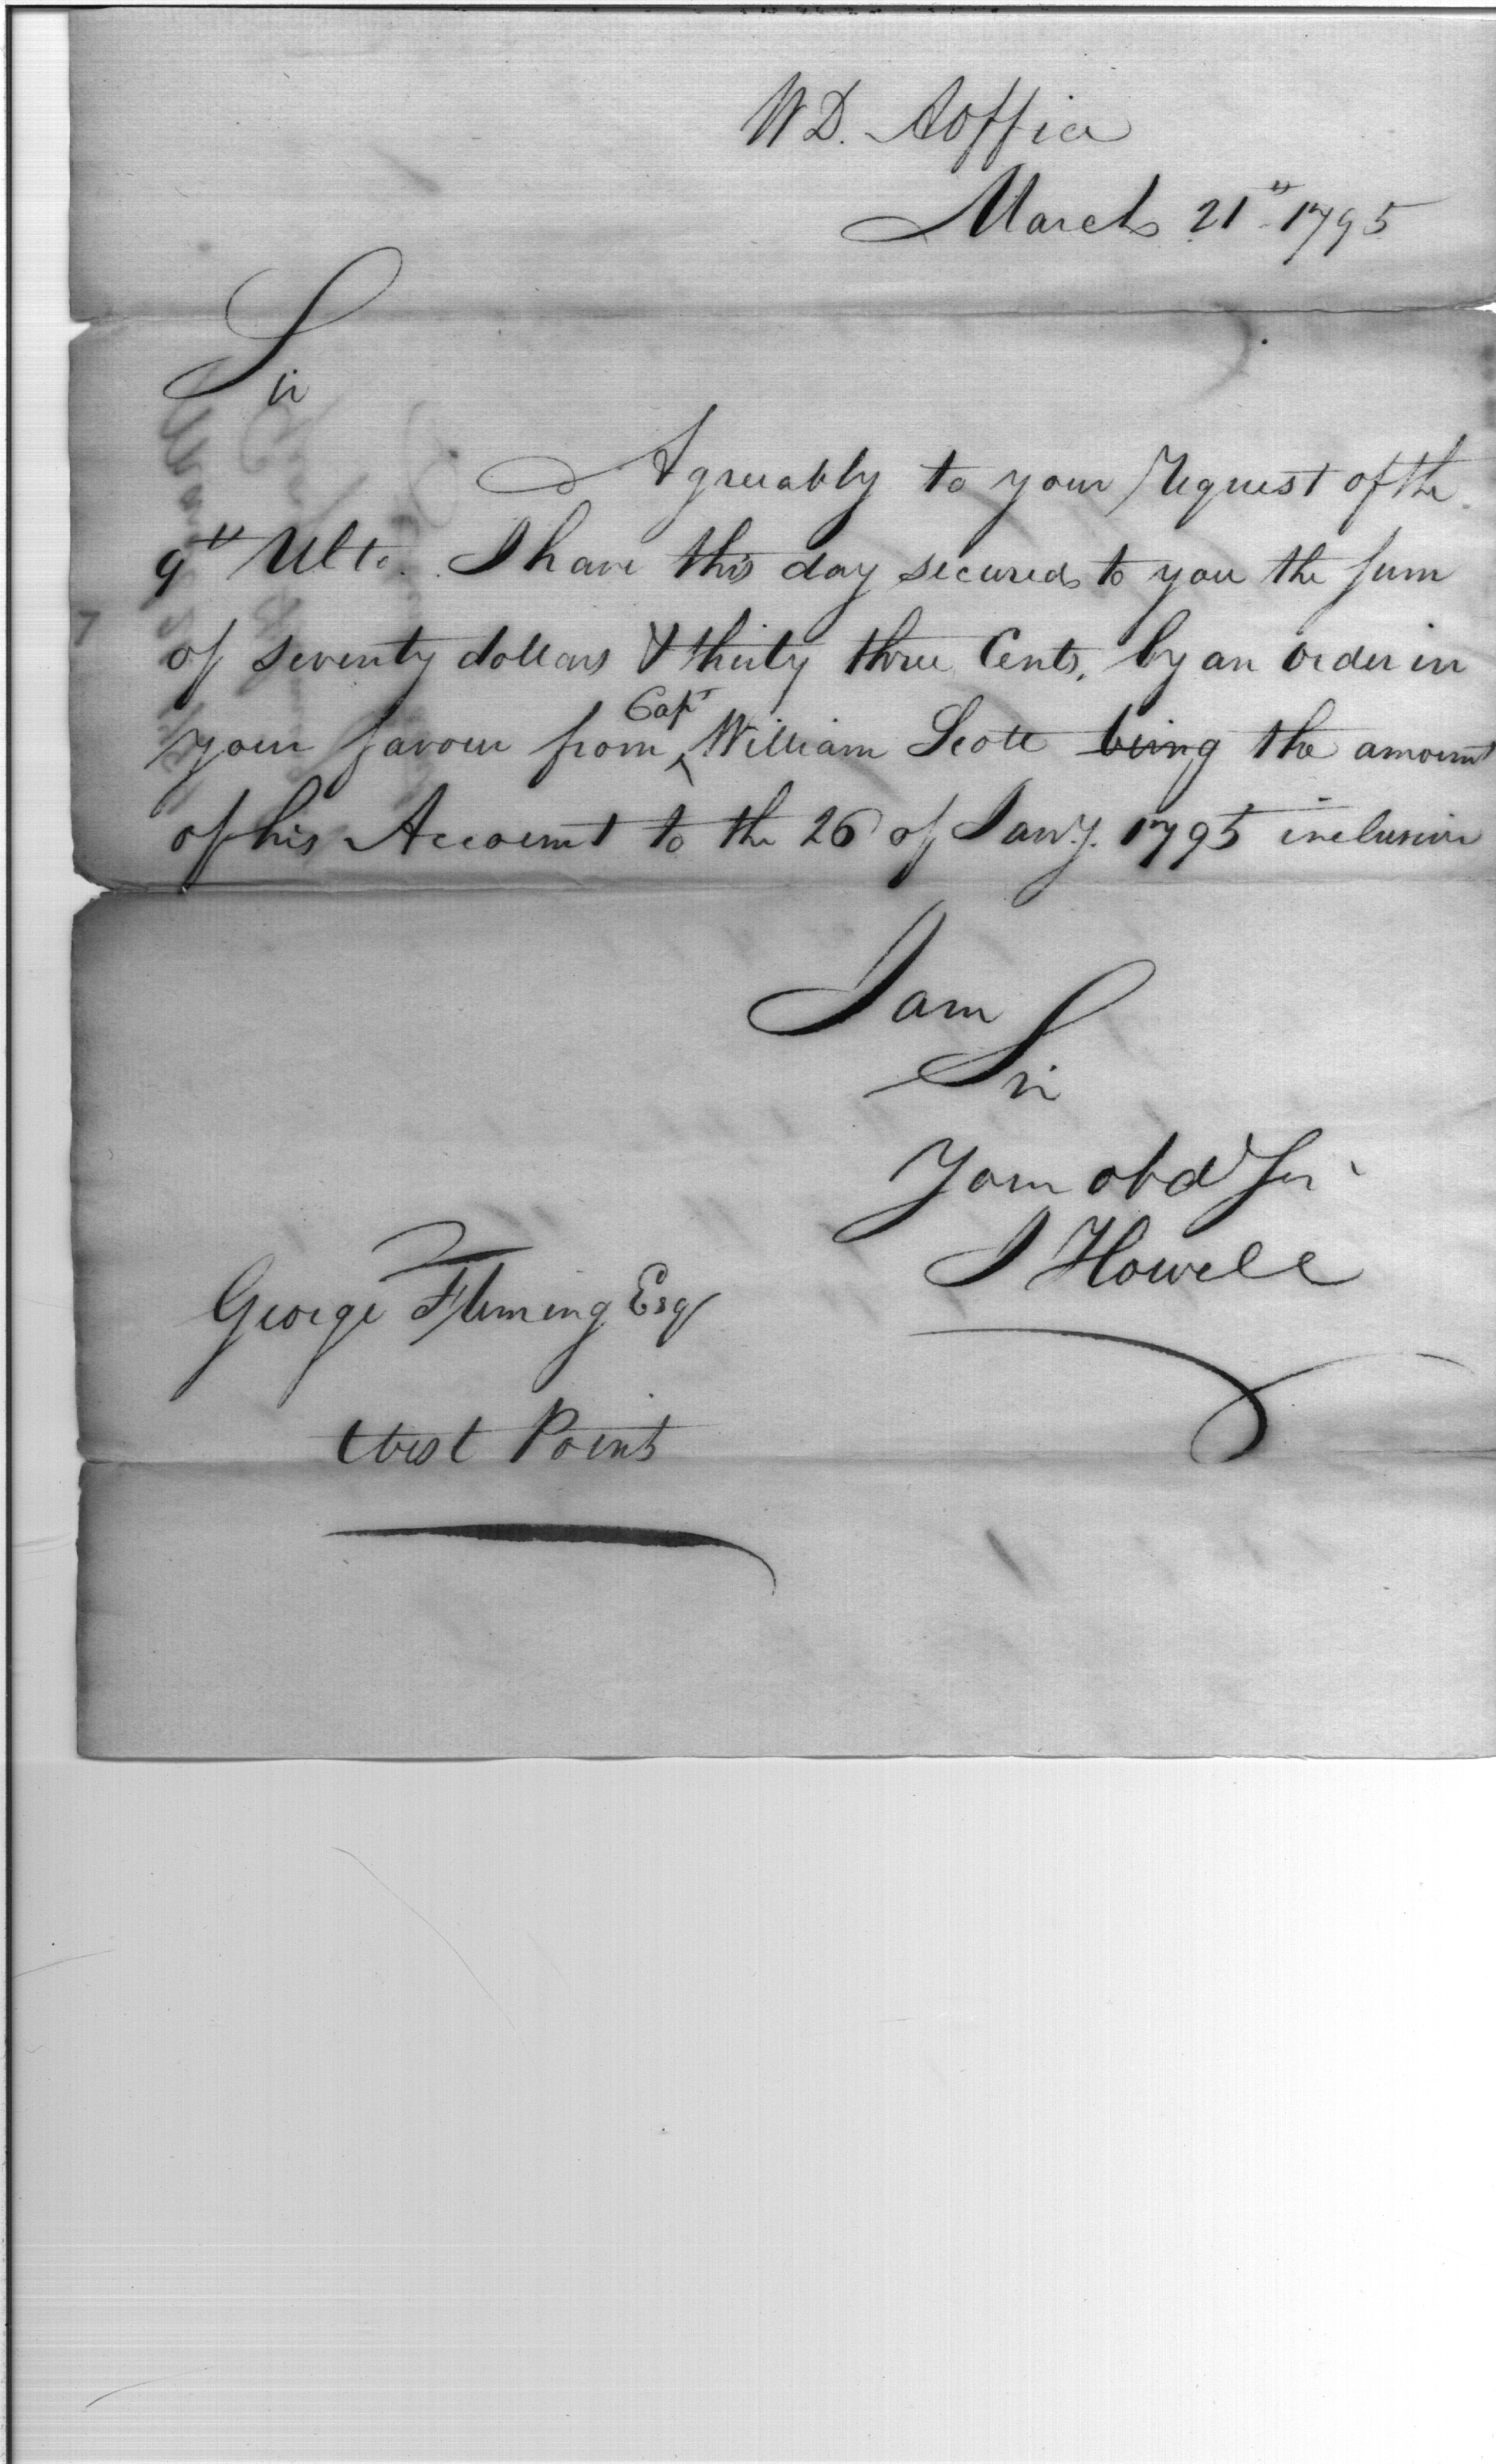 WD. AOffice
March 21st 1795
Sir
Agreeably to your Request of the
9th Ulto. I have this day secured to you the sum
of seventy dollars & thirty three Cents, by an order in
your favour from Capt William Scott being the amount
of his Account to the 26 of Jany. 1795 inclusive
I am
Sir
Your obd Ser
J Howell
George Fleming Esqr
West Point